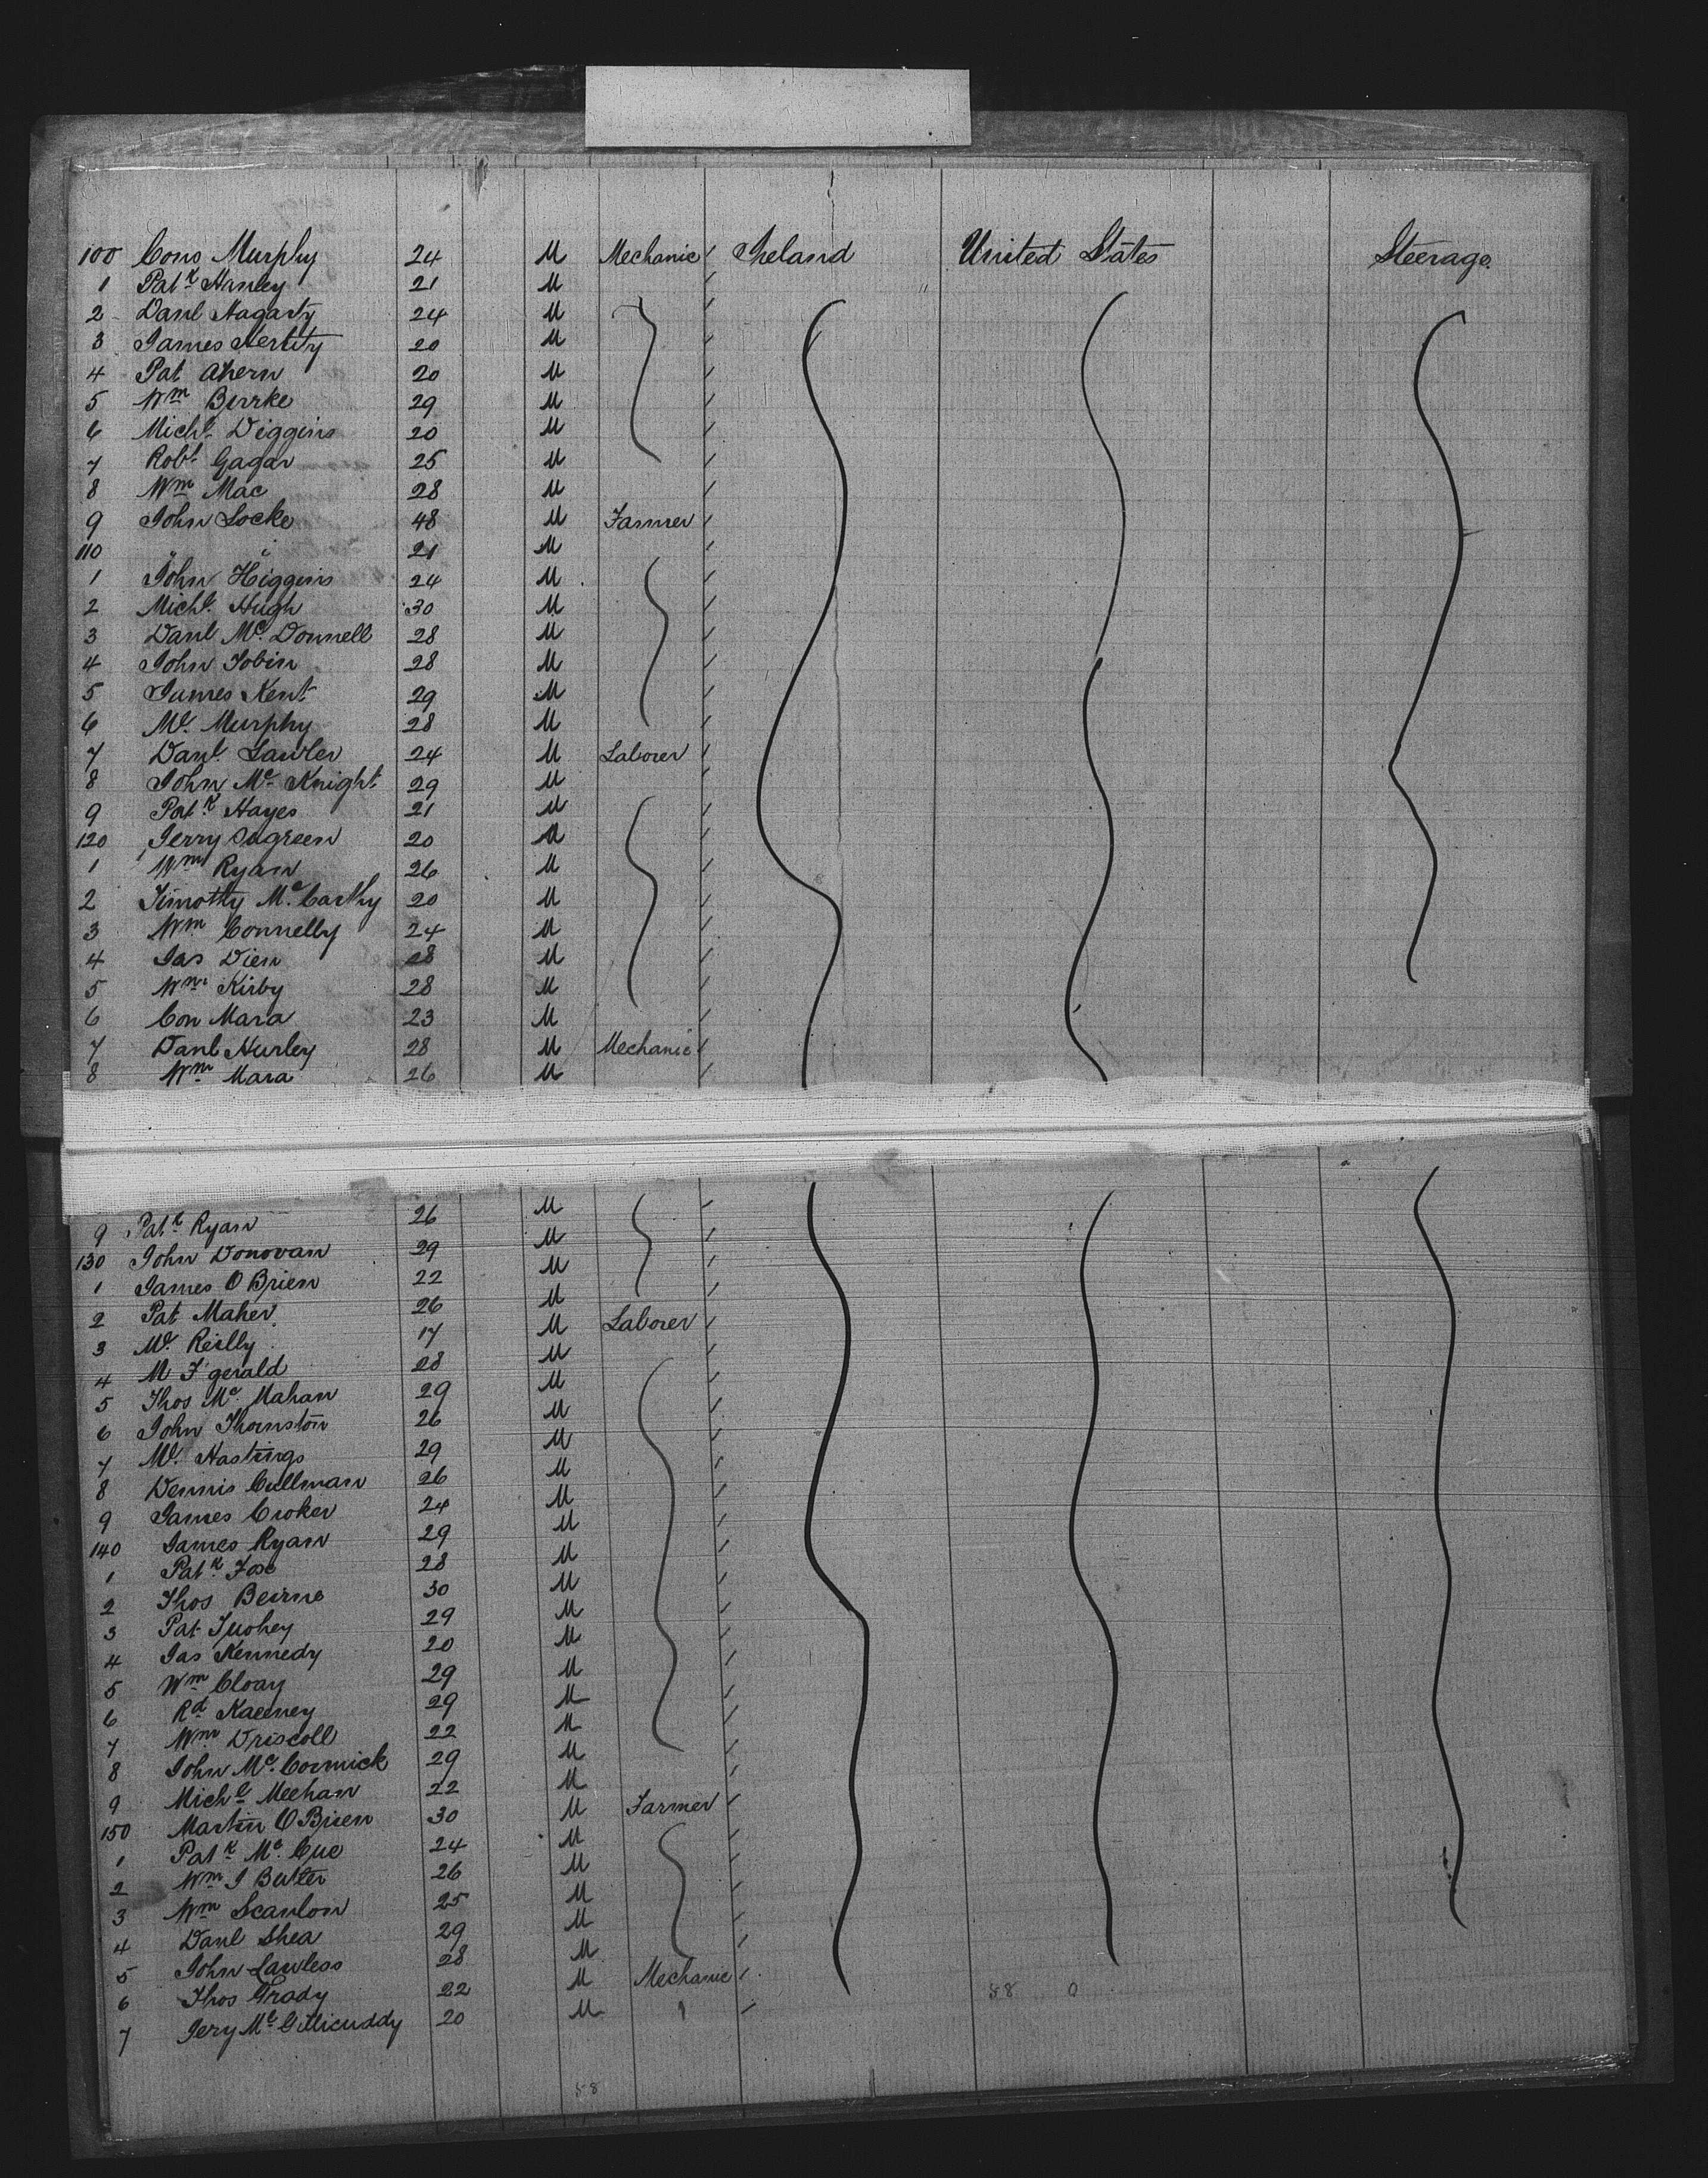 100 Cons Murphy 24 M Mechanic Ireland United States Steerage
1 Patk Hanley 21 M
2 Danl Hagarty 24 M
3 James 20 M
4 Pat Ahern 20 M
5 Wm Burke 29 M
6 Michl Diggins 20 M
7 Robt Gagan 25 M
8 Wm Mac 28 M
9 John Locke 48 M Farmer
110 " " 21 M
1 John Higgins 24 M
2 Michl Hugh 30 M
3 Danl Mc Donnell 28 M
4 John Tobin 28 M
5 James Kent 29 M
6 Ml Murphy 28 M
7 Danl Lawler 24 M Laborer
8 John Mc Knight 29 M
9 Patk Hayes 21 M
120 Jerry 20 M
1 Wm Ryan 26 M
2 Timothy Mc Carthy 20 M
3 Wm Connelly 24 M
4 Jas Dien 28 M
5 Wm Kirby 28 M
6 Con Mara 23 M
7 Danl Hurley 28 M Mechanic
8 Wm Mara 26 M
9 Patk Ryan 26 M
130 John Donovan 29 M
1 James O Brien 22 M
2 Pat Maher 26 M
3 Ml Reilly 17 M Laborer
4 M F'gerald 28 M
5 Thos Mc Mahan 29 M
6 John Thornston 26 M
7 Ml Hastings 29 M
8 Dennis Cullman 26 M
9 James Croker 24 M
140 James Ryan 29 M
1 Patk Fox 28 M
2 Thos Beirne 30 M
3 Pat Tuohey 29 M
4 Jas Kennedy 20 M
5 Wm Cloay 29 M
6 Rd Kaeeney 29 M
7 Wm Driscoll 22 M
8 John Mc Cormick 29 M
9 Michl Meehan 22 M
150 Martin O Brien 30 M Farmer
1 Patk Mc Cue 24 M
2 Wm J Butler 26 M
3 Wm Scanlon 25 M
4 Danl Shea 29 M
5 John Lawless 28 M
6 Thos Grady 22 M Mechanic
7 Jery Mc Gillicuddy 20 M "
58 0
58